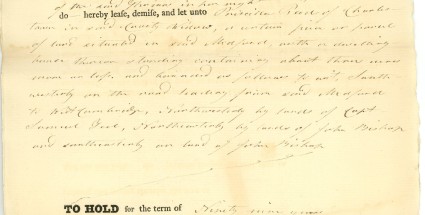 of the said
do — hereby lease, demise, and let unto Priscilla of Charles-
town in said County Widow, a certain piece or parcel
of land situated in said Medford, with a dwelling
house thereon standing containing about three acres
more or less and bounded as follows to wit, South-
westerly on the road leading from said Medford
to West Cambridge, Northwesterly by lands of Capt
Samuel , Northeasterly by lands of John Bishop
and southeasterly on land of John Bishop
TO HOLD for the term of Ninety nine years